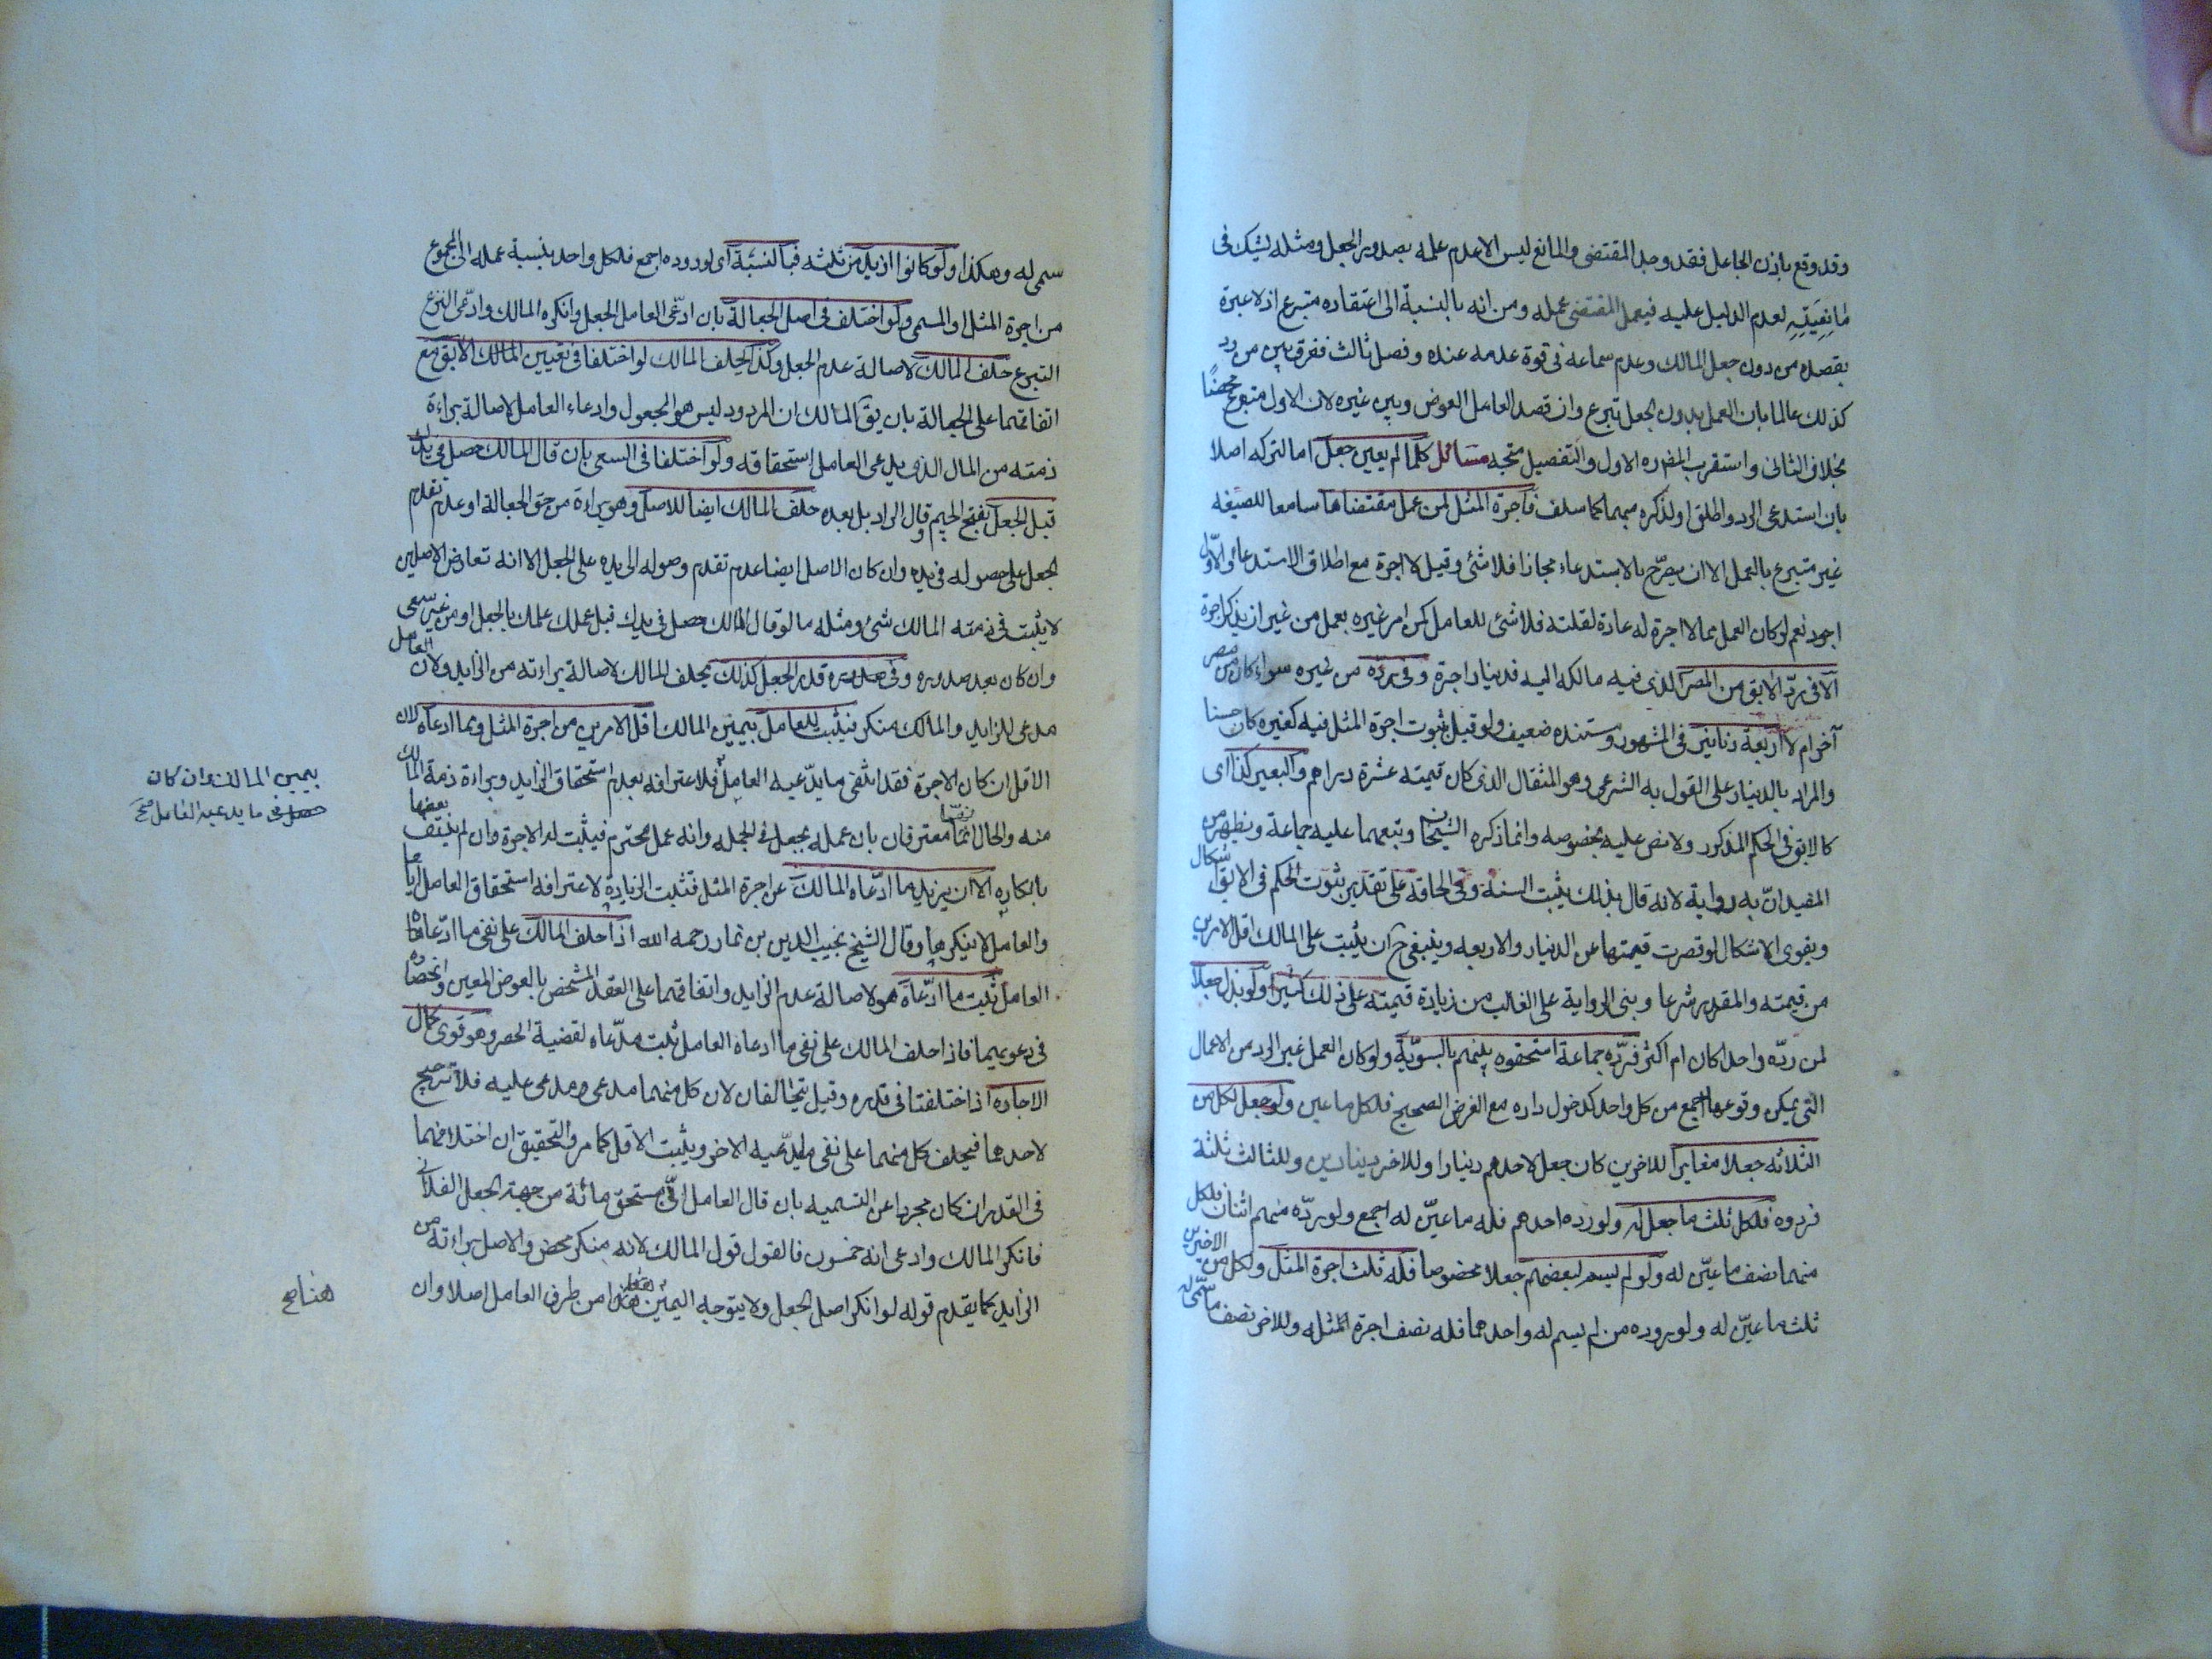 وقد وقع باذن الجاعل فقد وجد المقتضى والمانع ليس الا عدم علمه بصدور الجعل ومثله يشك فى
مَانِعِيَّتِهِ لعدم الدليل عليه فيعمل المقتضى عمله ومن انه بالنسبة الى اعتقاده متبرع اذ لا عبرة
بقصده من دون جعل المالك وعدم سماعه فى قوة عدمه عنده وفصل ثالث ففرق بين من رد
كذلك عالما بان العمل بدون الجعل تبرع وان قصد العامل العوض وبين غيره لان الاول متبرع محضًا
بخلاف الثانى واستقرب المض ره الاول والتفصيل متجه مسائل كلما لم يعين جعل اما لتركه اصلا
بان استدعى الرد واطلق او لذكره مبهما كما سلف فاجرة المثل لمن عمل مقتضاها سامعا للصيغه
غير متبرع بالعمل الا ان يصرّح بالاستدعاء مجانا فلا شئ وقيل لا اجرة مع اطلاق الاستدعاء والاوّل
اجود نعم لو كان العمل مما لا اجرة له عادة لقلته فلا شئ للعامل كمن امر غيره بعمل من غير ان يذكر اجرة
الا فى ردّ الابق من المصر الذى فيه مالكه اليه فدينار اجرة وفى ردّه من غيره سواء كان من مصر
آخر ام لا اربعة دنانير فى المشهور ومستنده ضعيف ولو قيل بثبوت اجرة المثل فيه كغيره كان حسنا
والمراد بالدينار على القول به الشرعى وهو المثقال الذى كان قيمته عشرة دراهم والبعير كذا اى
كالابق فى الحكم المذكور ولا نص عليه بخصوصه وانما ذكره الشيخان وتبعهما عليه جماعة ويظهر من
المفيد انّ به رواية لانه قال بذلك يثبت السنة وفى الحاقه على تقدير ثبوت الحكم فى الابق اشكال
ويقوى الاشكال لو قصرت قيمتها عن الدينار والاربعه وينبغى ح ان يثبت على المالك اقل الامرين
من قيمته والمقدر شرعا وبنى الرواية على الغالب من زيادة قيمته على ذلك كثيرا ولو بذل جعلا
لمن ردّه واحدا كان ام اكثر فردّه جماعة استحقوه بينهم بالسويّة ولو كان العمل غير الرد من الاعمال
التى يمكن وقوعها اجمع من كل واحد كدخول داره مع الغرض الصحيح فلكل ما عين ولو جعل لكل من
الثلاثه جعلا مغايرا للاخرين كان جعل لاحدهم دينارا وللاخر دينارين وللثالث ثلثة
فردوه فلكل ثلث ما جعل له ولو رده احدهم فله ما عيّن له اجمع ولو ردّه منهم اثنان فلكل
منهما نصف ما عيّن له ولو لم يسم لبعضهم جعلا مخصوصا فله ثلث اجرة المثل ولكل من الاخرين
ثلث ما عيّن له ولو رده من لم يسم له واحدهما فله نصف اجرة المثل وللاخر نصف ما سمّى له
سمى له وهكذا ولو كانوا ازيد من ثلثه فبالنسبة اى لو ردوه اجمع فلكل واحد بنسبة عمله الى المجموع
من اجرة المثل او المسمى ولو اختلف فى اصل الجعالة بان ادّعى العامل الجعل وانكره المالك وادّعى التبرع
التبرع حلف المالك لاصالة عدم الجعل وكذا يحلف المالك لو اختلفا فى تعيين المالك الابق مع
اتفاقهما على الجعالة بان يق المالك ان المردود ليس هو المجعول وادعاء العامل لاصالة براءة
ذمته من المال الذى يدعى العامل استحقاقه ولو اختلفا فى السعى بان قال المالك حصل فى يدك
قبل الجعل بفتح الجيم وقال الراد بل بعده حلف المالك ايضا للاصل وهو براءة من حق الجعالة او عدم تقدم
الجعل على حصوله فى يده وان كان الاصل ايضا عدم تقدم وصوله الى يده على الجعل الا انه تعارض الاصلين
لا يثبت فى ذمته المالك شئ ومثله ما لو قال المالك حصل فى يدك قبل عملك علمك بالجعل او من غير سعى
وان كان بعد صدوره وفى قدر الجعل كذلك يحلف المالك لاصالة براءته من الزايد ولان العامل
مدعى للزايد والمالك منكر فيثبت للعامل بيمين المالك اقل الامرين من اجرة المثل ومما ادعاه لان
الاقل ان كان الاجرة فقد انتفى ما يدّعيه العامل فلاعترافه بعدم استحقاق الزايد وبراءة ذمة المالك
بيمين المالك وان كان
ما يدعيه العامل صح
منه والحال انهما معترفان بان عمله بجعل فى الجمله وانه عمل محترم فيثبت له الاجرة وان لم ينتف بعضها
بانكاره الا ان يزيد ما ادّعاه المالك عن اجرة المثل فتثبت الزيادة لاعترافه استحقاق العامل اياها
والعامل لا ينكرها وقال الشيخ نجيب الدين بن نما رحمه الله اذا حلف المالك على نفى ما ادّعاه
العامل ثبت ما ادّعاه هو لاصالة عدم الزايد واتفاقهما على العقد المشخص بالعوض المعين وانحصاره
فى دعوييهما فاذا حلف المالك على نفى ما ادعاه العامل ثبت مدّعاه لقضية الحصر وهو قوى كمال
الاجاره اذا اختلفتا فى قدره وقيل يتحالفان لان كل منهما مدعى ومدعى عليه فلا ترجيح
لاحدهما فيحلف كل منهما على نفى ما يدّعيه الاخر ويثبت الاقل كما مر والتحقيق ان اختلافهما
فى القدر ان كان مجردا عن التسميه بان قال العامل انّى مستحق مائة من جهة الجعل الفلانى
فانكر المالك وادعى انه خمسون فالقول قول المالك لانه منكر محض والاصل براءته من
الزايد كما يقدم قوله لو انكر اصل الجعل ولا يتوجه اليمين من طرف العامل اصلا وان
هنا صح